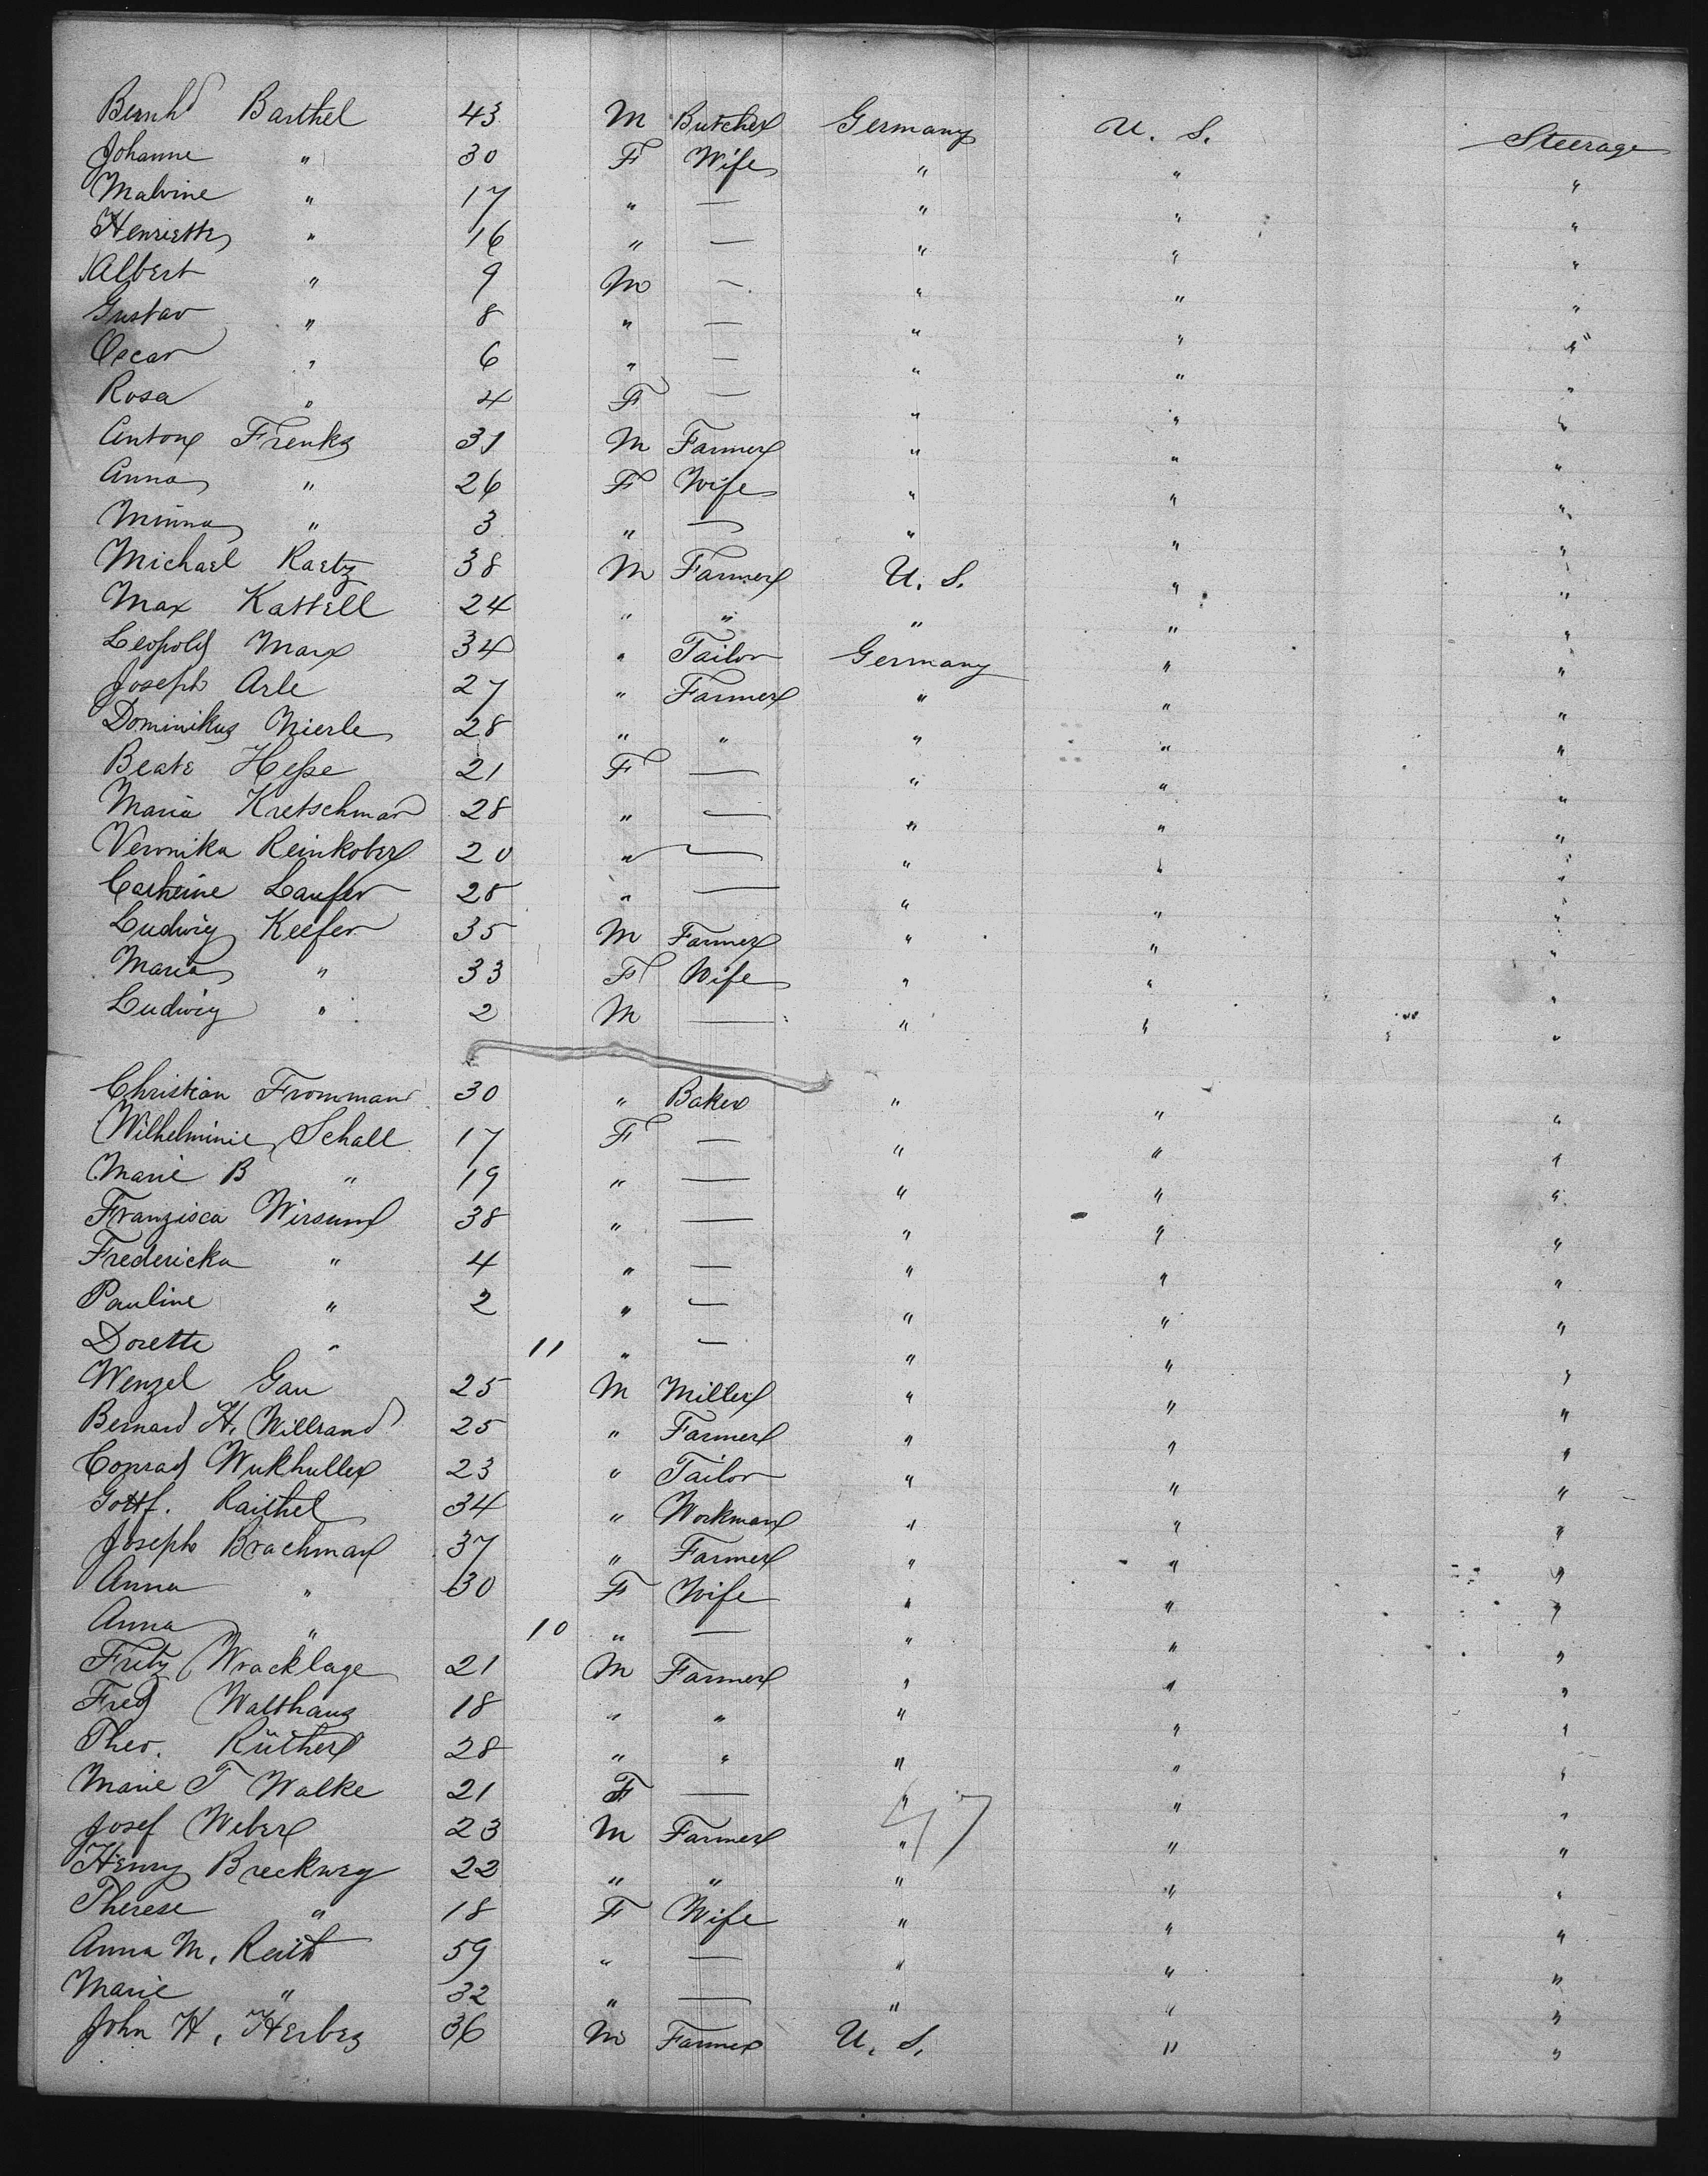 Bernhd Barthel 43 M Butcher Germany U. S. Steerage
Johanne " 30 F Wife " " "
Malvine " 17 " — " " "
Henriette " 16 " — " " "
Albert " 9 M — " " "
Gustav " 8 " — " " "
Oscar " 6 " — " " "
Rosa " 4 F — " " "
Anton Frenks 31 M Farmer " " "
Anna " 26 F Wife " " "
Minna " 3 " — " " "
Michael Raetz 38 M Farmer U. S. " "
Max Kattell 24 " " " " "
Leopold Marx 34 " Tailor Germany " "
Joseph Arle 27 " Farmer " " "
Dominikus Nierle 28 " " " " "
Beate Hesse 21 F — " " "
Maria Kretschmar 28 " — " " "
Veronika Reinkober 20 " — " " "
Catheine Laufer 28 " — " " "
Ludwig Keefer 35 M Farmer " " "
Maria " 33 F Wife " " "
Ludwig " 2 M — " " "
Christian Fromman 30 " Baker " " "
Wilhelminie Schall 17 F — " " "
Marie B " 19 " — " " "
Franzisca Wirsum 38 " — " " "
Fredericka " 4 " — " " "
Pauline " 2 " — " " "
Dorette " 11 " — " " "
Wenzel Gau 25 M Miller " " "
Bernard H. Willrand 25 " Farmer " " "
Conrad Wukhuller 23 " Tailor " " "
Gottf. Raithel 34 " Workman " " "
Joseph Brachman 37 " Farmer " " "
Anna " 30 F Wife " " "
Anna " 10 " — " " "
Fritz Wracklage 21 M Farmer " " "
Fred Walthaus 18 " " " " "
Theo. Rüther 28 " " " " "
Marie T Walke 21 F — " " "
47
Josef Weber 23 M Farmer " " "
Henry Breckweg 22 " " " " "
Therese " 18 F Wife " " "
Anna M. Reith 59 " — " " "
Marie " 32 " — " " "
John H. Herbes 36 M Farmer U. S. " "